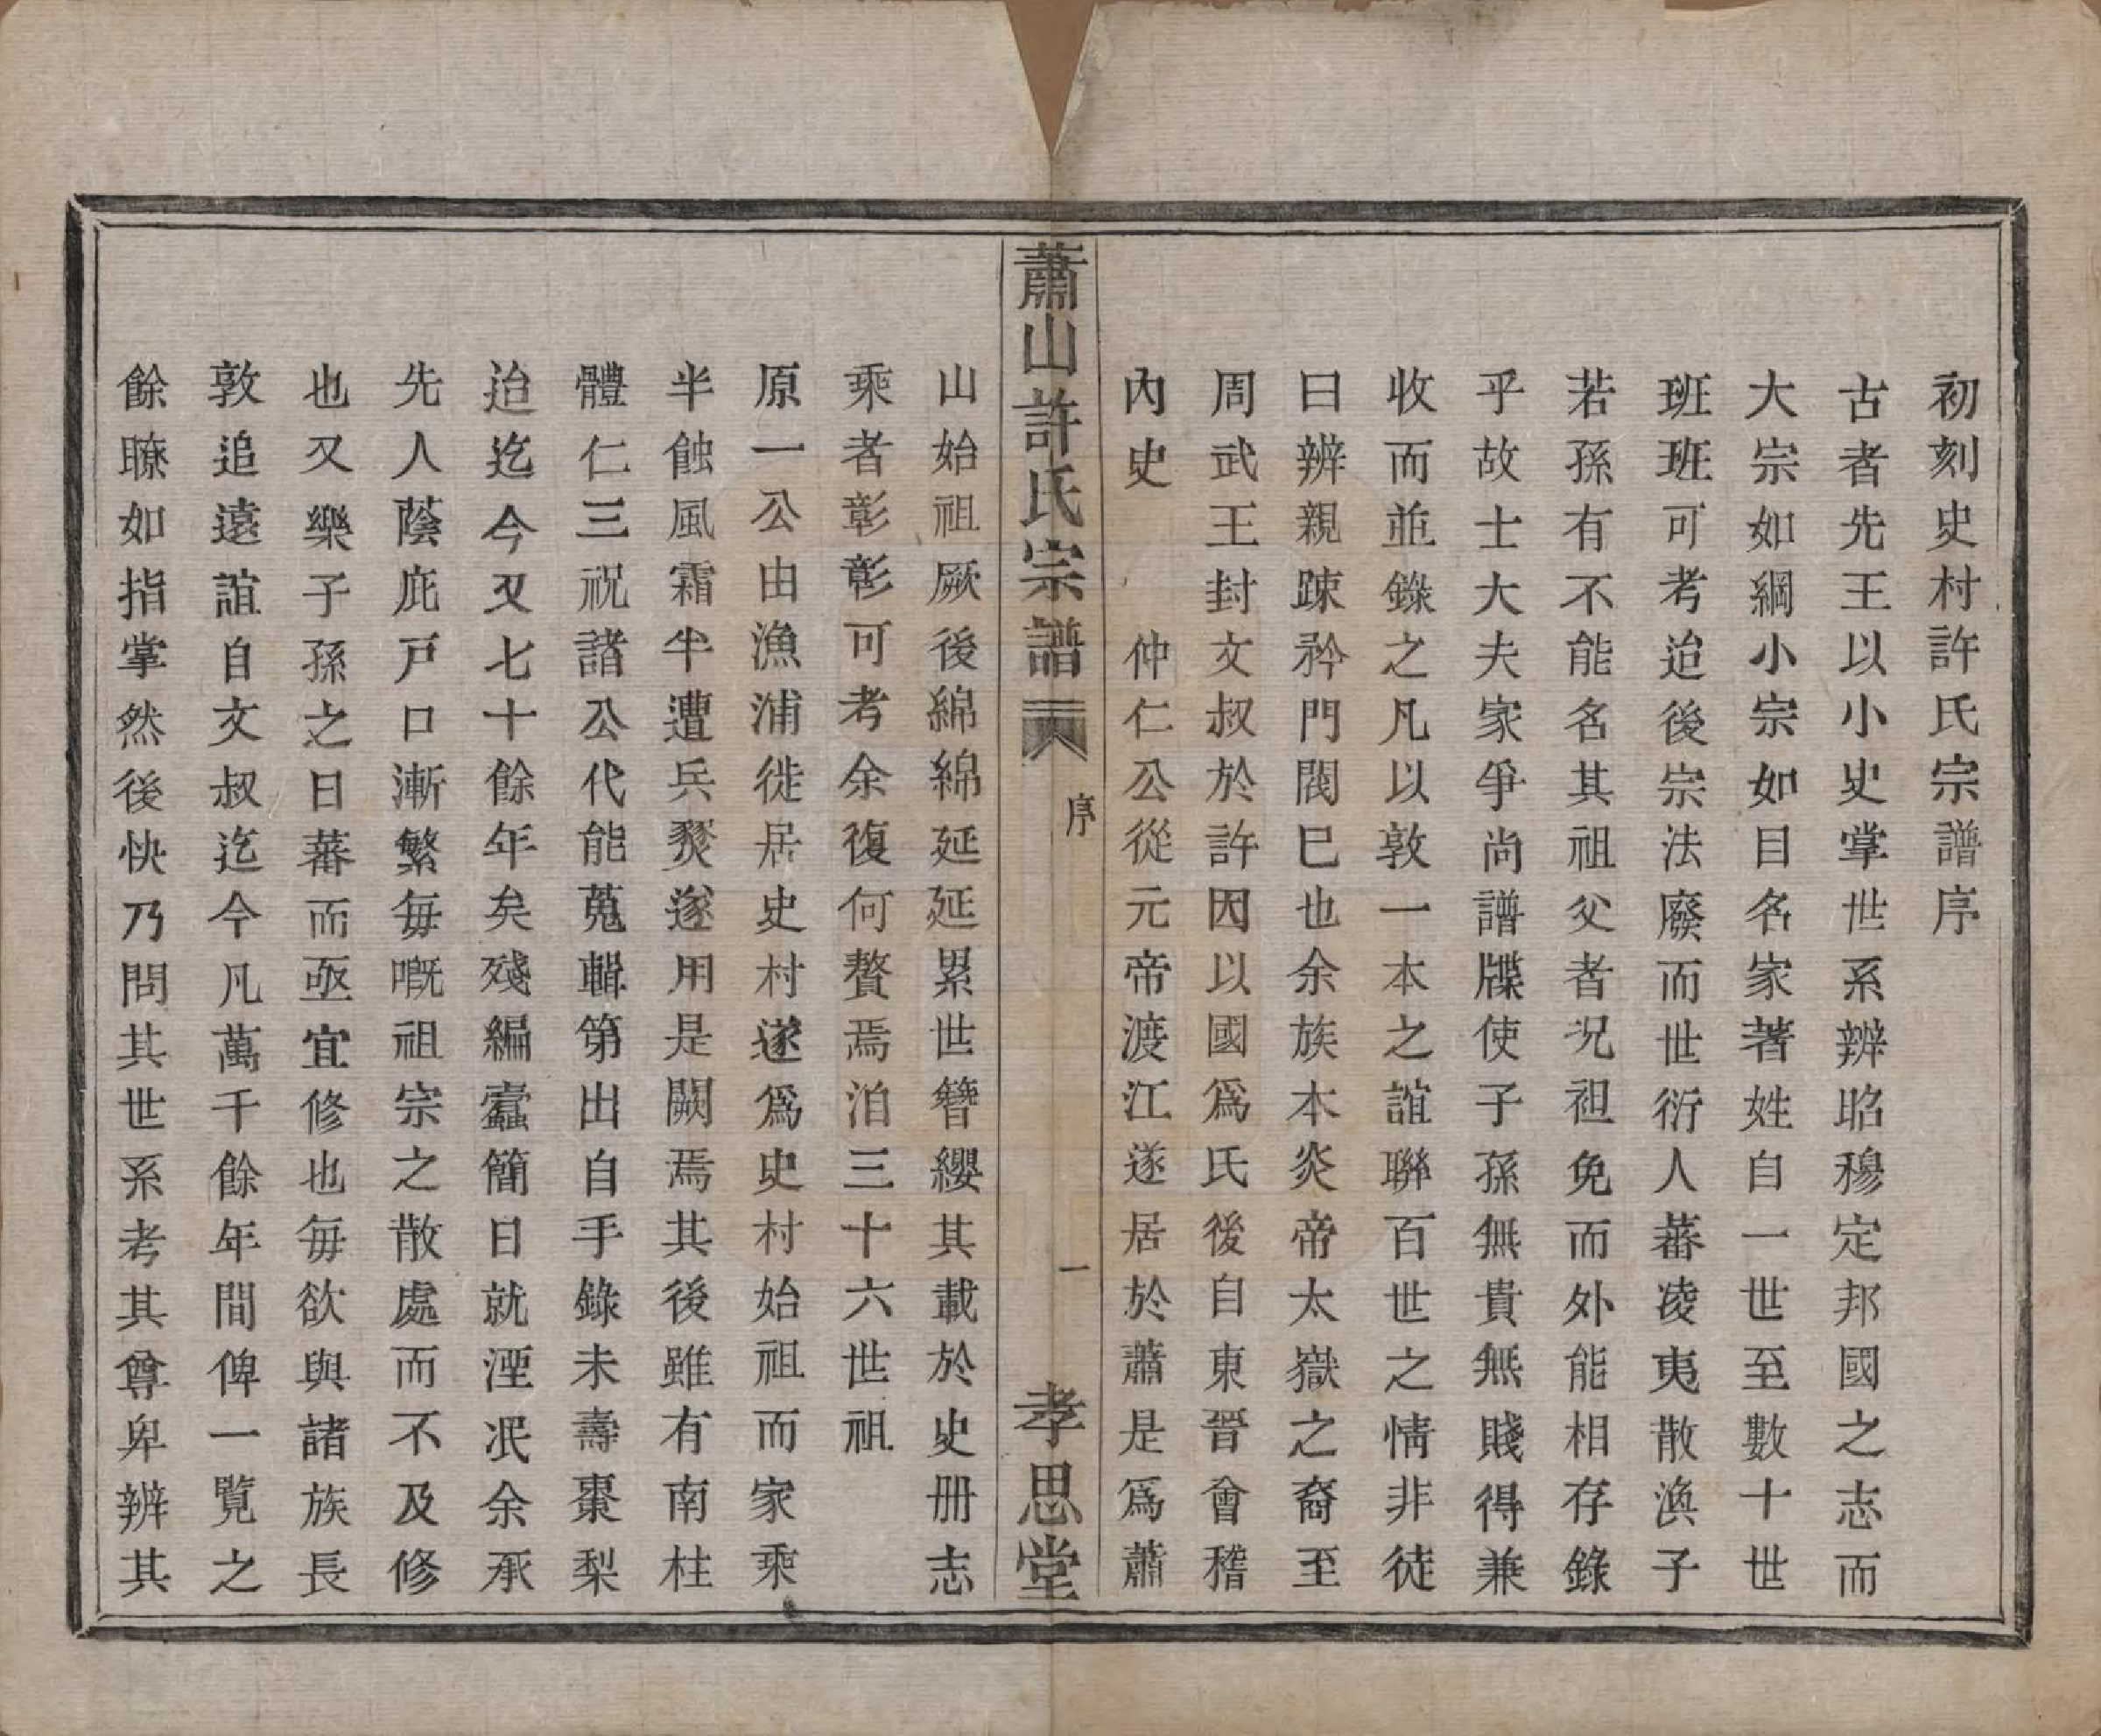 初刻史村許氏宗譜序
古者先王以小史掌世系辨昭穆定邦國之志而
大宗如綱小宗如目名家著姓自一世至數十世
班班可考迨後宗法廢而世衍人蕃凌夷散渙子
若孫有不能名其祖父者况祖免而外能相存錄
乎故士大夫家爭尚譜牒使子孫無貴無賤得兼
收而並錄之凡以敦一本之誼聯百世之情非徒
曰辨親踈矜門閥巳也余族本炎帝太嶽之裔至
周武王封文叔於許因以國爲氏後自東晉會稽
內史 仲仁公從元帝渡江遂居於蕭是爲蕭
蕭山許氏宗譜 序 一 孝思堂
山始祖厥後綿綿延延累世簪纓其載於史册志
乘者彰彰可考余復何贅焉泊三十六世祖
原一公由漁浦徙居史村遂爲史村始祖而家乘
半蝕風霜半遭兵燹遂用是闕焉其後雖有南柱
體仁三祝諸公代能蒐輯第出自手錄未壽棗梨
迨迄今又七十餘年矣殘編蠹簡日就湮泯余承
先人蔭庇戸口漸繁每嘅祖宗之散處而不及修
也又樂子孫之日蕃而亟宜修也每欲與諸族長
敦追遠誼自文叔迄今凡萬千餘年間俾一覽之
餘瞭如指掌然後快乃問其世系考其尊卑辨其